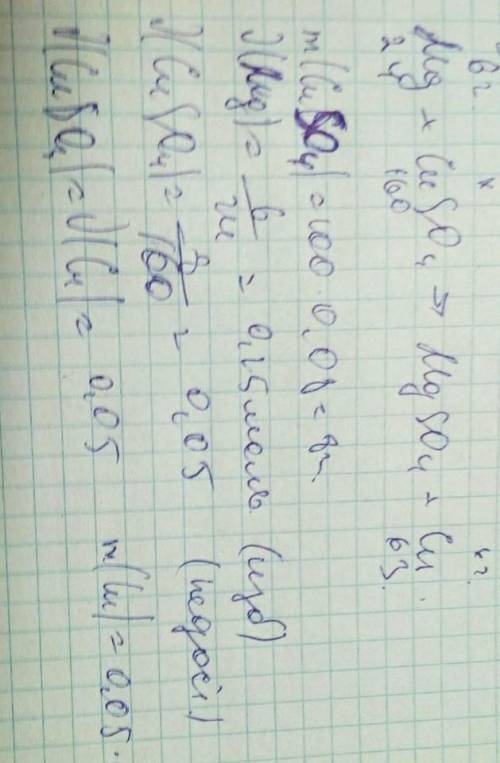 6г. x x г.
Mg + CuSO₄ → MgSO₄ + Cu.
24 160 63.
m(CuSO₄) = 100 · 0,08 = 8г.
ν(Mg) = 6/24 = 0,25 моль (изб)
ν(CuSO₄) = 8/160 = 0,05 (недост.)
ν(CuSO₄) = ν(Cu) = 0,05 m(Cu) = 0,05 ·